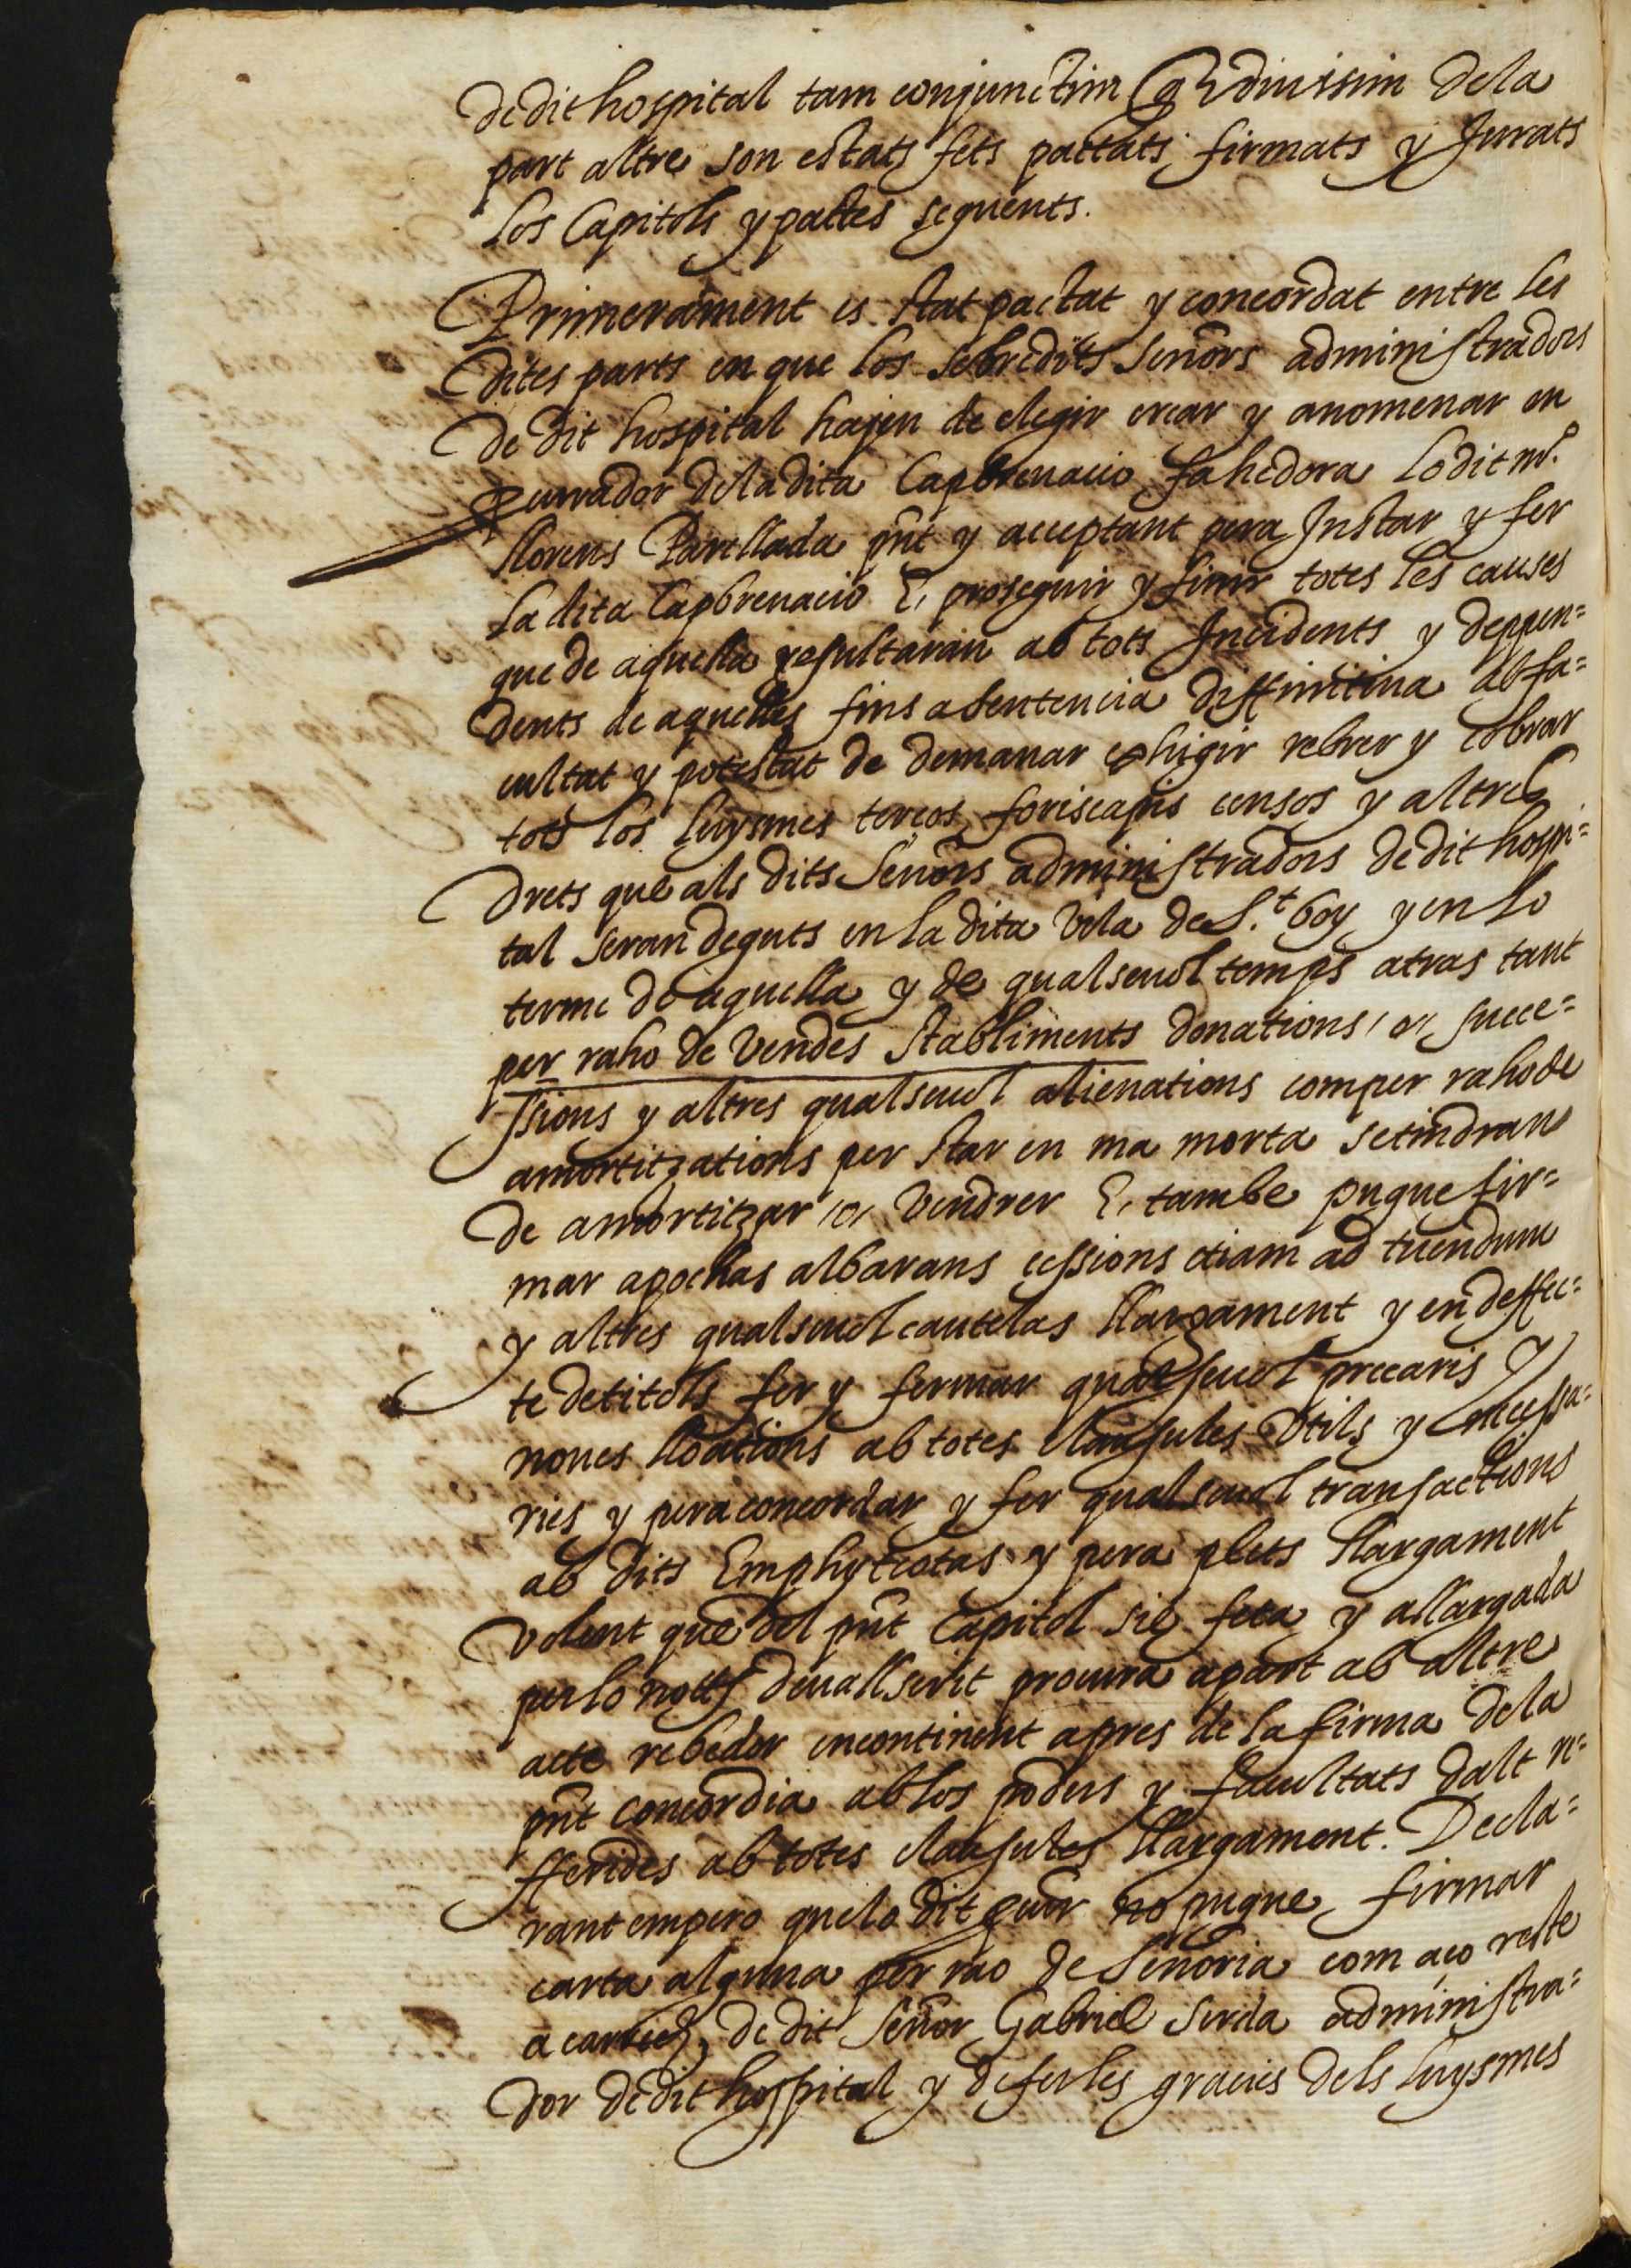 de dit hospital tam conjunctim q̃ diuissim de la
part altre son estats fets pactats firmats y Jurats
los Capitols y pactes seguents.
Primerament es stat pactat y concordat entre les
dites parts en que los sobredits Señors administradors
de dit hospital hajen de elegir crear y anomenar en
Procurador de la dita Capbrenacio fahedora lo dit mº.
llorens Parellada pñt y acceptant pera Instar y fer
la dita Capbrenacio E, proseguir y finir totes les causes
que de aquella resultaran ab tots Incidents y deppen=
dents de aquelles fins a sentencia diffinitiua ab fa=
cultat y potestat de demanar exhigir rebrer y cobrar
tots los luysmes tercos foriscapis censos y altres
drets que als dits Señors administradors de dit hospi=
tal seran deguts en la dita Vila de S.t boy y en lo
terme de aquella y de qualseuol temps atras tant
per raho de Vendes Stabliments donations /o/ succe=
ssions y altres qualseuol alienations com per raho de
amortitzations per star en ma morta se tindran
de amortitzar /o/ Vendrer E, tambe pugue fir=
mar apochas albarans cessions etiam ad tuendum
y altres qualseuol cautelas llargament y en deffec=
te de titols fer y fermar qualseuol precaris y
noues lloations ab totes clausules Vtils y necessa=
ries y pera concordar y fer qualseuol transactions
ab dits Emphyteotas y pera plets llargament
Volent que del pñt Capitol sie feta y allargada
per lo notj deuall scrit procura apart ab altre
acte rebedor encontinent apres de la firma de la
pñt concordia ab los poders y facultats dalt re=
fferides ab totes clausules llargament. Decla=
rant empero que lo dit pcur no pugue firmar
carta alguna per rao de Señoria com aço reste
a carrech de dit Señor Gabriel Serda administra=
dor de dit hospital y de fer les gracies dels luysmes